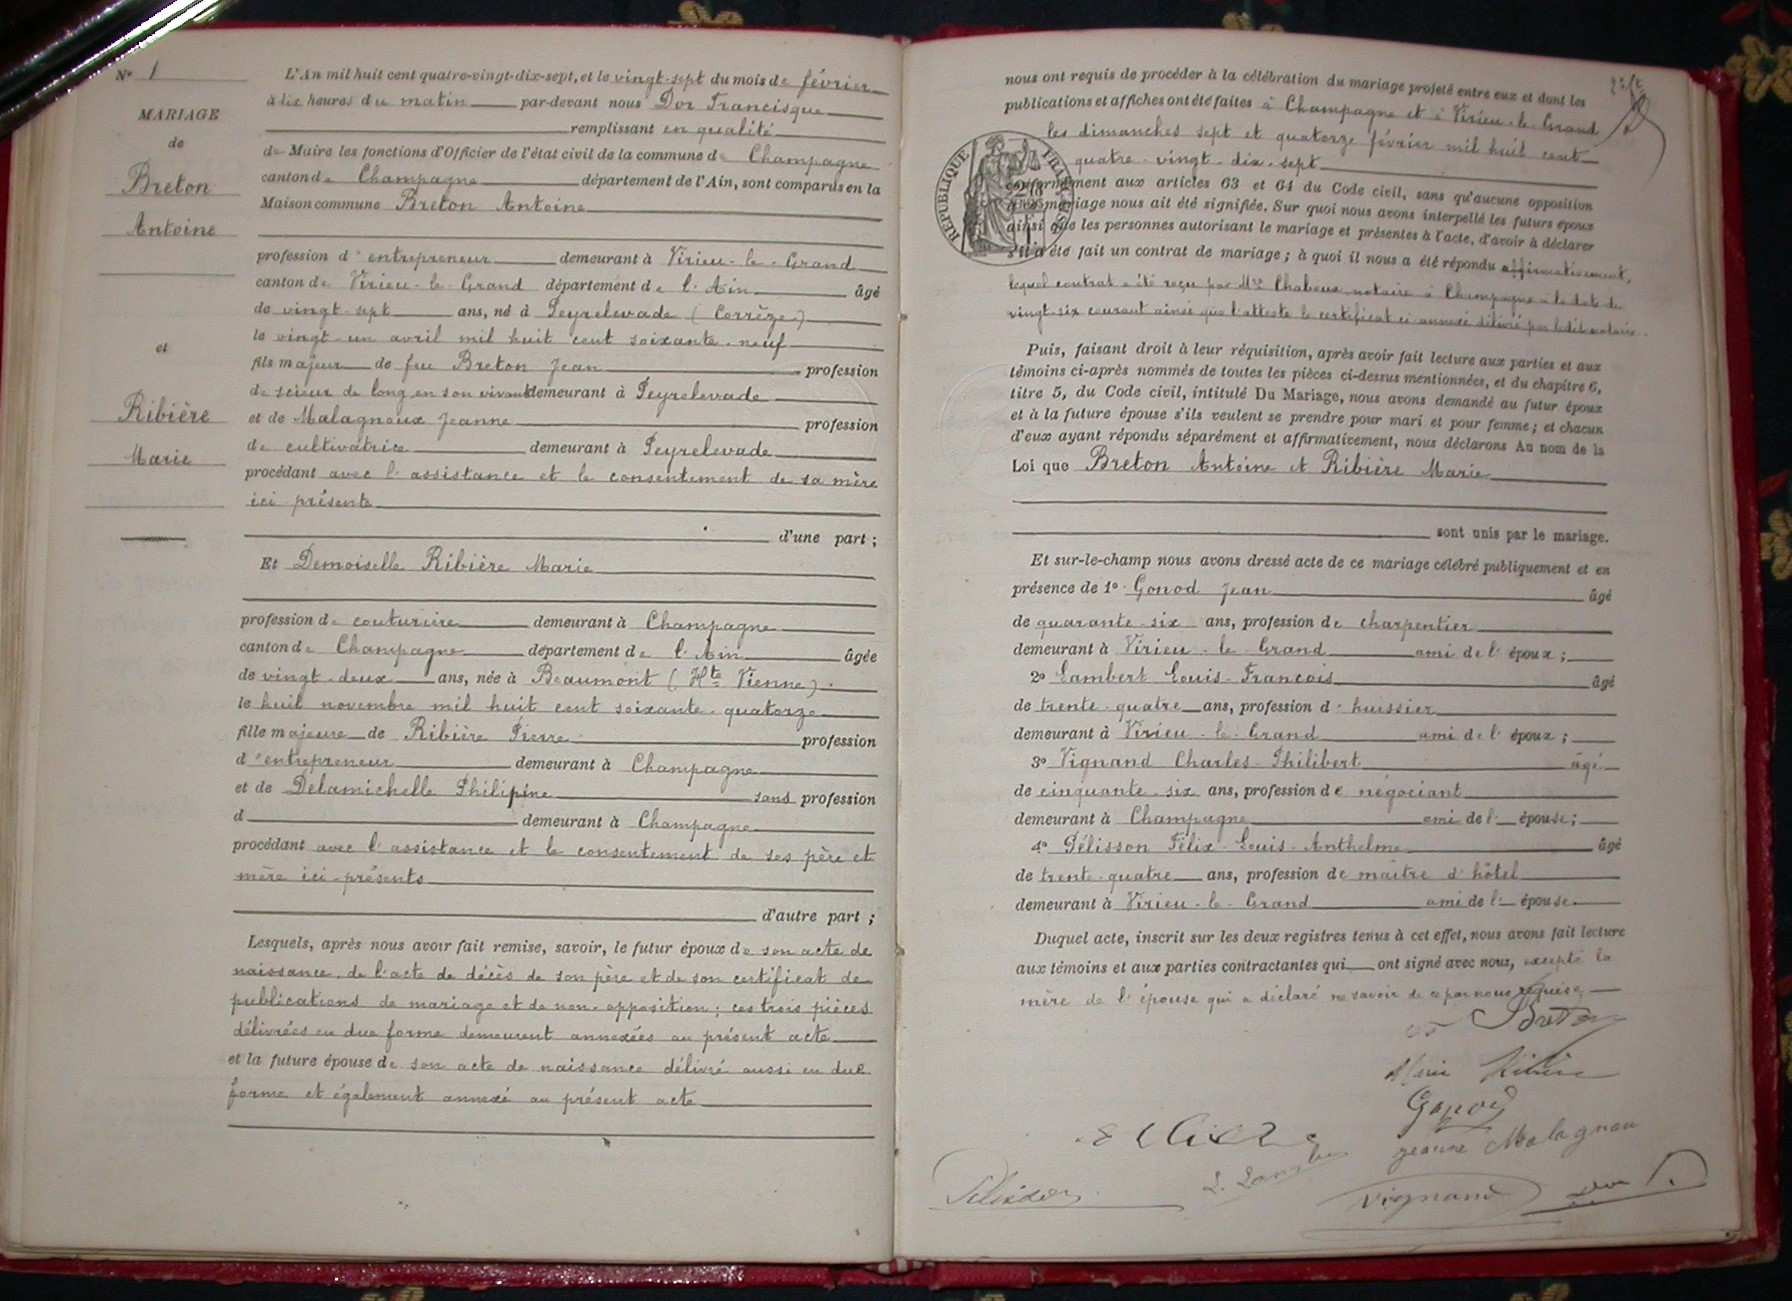 N° 1
MARIAGE
de
Breton
Antoine
et
Ribière
Marie
L'An mil huit cent quatre-vingt-dix-sept, et le vingt-sept du mois de février
à dix heures du matin par-devant nous Dor Francisque
remplissant en qualité
de Maire les fonctions d'Officier de l'état civil de la commune de Champagne
canton de Champagne département de l'Ain, sont comparus en la
Maison commune Breton Antoine
profession d'entrepreneur demeurant à Virieu-le-Grand
canton de Virieu-le-Grand département de l'Ain âgé
de vingt-sept ans, né à Peyrelevade (Corrèze)
le vingt-un avril mil huit cent soixante-neuf
fils majeur de feu Breton Jean profession
de scieur de long en son vivant demeurant à Peyrelevade
et de Malagnoux Jeanne profession
de cultivatrice demeurant à Peyrelevade
procédant avec l'assistance et le consentement de sa mère
ici présente
d'une part ;
Et Demoiselle Ribière Marie
profession de couturière demeurant à Champagne
canton de Champagne département de l'Ain âgée
de vingt-deux ans, née à Beaumont (Hte Vienne)
le huit novembre mil huit cent soixante-quatorze
fille majeure de Ribière Pierre profession
d'entrepreneur demeurant à Champagne
et de Delamichelle Philipine sans profession
d demeurant à Champagne
procédant avec l'assistance et le consentement de ses père et
mère ici-présents
d'autre part ;
Lesquels, après nous avoir fait remise, savoir, le futur époux de son acte de
naissance, de l'acte de décès de son père et de son certificat de
publications de mariage et de non-opposition ; ces trois pièces
délivrées en due forme demeurent annexées au présent acte
et la future épouse de son acte de naissance délivré aussi en due
forme et également annexé au présent acte
nous ont requis de procéder à la célébration du mariage projeté entre eux et dont les
publications et affiches ont été faites à Champagne et à Virieu-le-Grand
les dimanches sept et quatorze février mil huit cent
quatre-vingt-dix-sept
RÉPUBLIQUE FRANÇAISE
conformément aux articles 63 et 64 du Code civil, sans qu'aucune opposition
à ce mariage nous ait été signifiée. Sur quoi nous avons interpellé les futurs époux
ainsi que les personnes autorisant le mariage et présentes à l'acte, d'avoir à déclarer
s'il a été fait un contrat de mariage ; à quoi il nous a été répondu affirmativement,
lequel contrat a été reçu par Me Chabeux notaire à Champagne à la date du
vingt-six courant ainsi que l'atteste le certificat ci annexé délivré par le dit notaire.
Puis, faisant droit à leur réquisition, après avoir fait lecture aux parties et aux
témoins ci-après nommés de toutes les pièces ci-dessus mentionnées, et du chapitre 6,
titre 5, du Code civil, intitulé Du Mariage, nous avons demandé au futur époux
et à la future épouse s'ils veulent se prendre pour mari et pour femme ; et chacun
d'eux ayant répondu séparément et affirmativement, nous déclarons Au nom de la
Loi que Breton Antoine et Ribière Marie
sont unis par le mariage.
Et sur-le-champ nous avons dressé acte de ce mariage célébré publiquement et en
présence de 1° Gonod Jean âgé
de quarante-six ans, profession de charpentier
demeurant à Virieu-le-Grand ami de l'époux ;
2° Lambert Louis-François âgé
de trente-quatre ans, profession d'huissier
demeurant à Virieu-le-Grand ami de l'époux ;
3° Vignand Charles-Philibert âgé
de cinquante-six ans, profession de négociant
demeurant à Champagne ami de l' épouse ;
4° Pélisson Félix-Louis-Anthelme âgé
de trente-quatre ans, profession de maître d'hôtel
demeurant à Virieu-le-Grand ami de l' épouse.
Duquel acte, inscrit sur les deux registres tenus à cet effet, nous avons fait lecture
aux témoins et aux parties contractantes qui ont signé avec nous, excepté la
mère de l'épouse qui a déclaré ne savoir de ce par nous requise
Breton
Marie Ribière
Gonod
Jeanne Malagnou
L. Lambert
Pélisson
Vignand
Dor